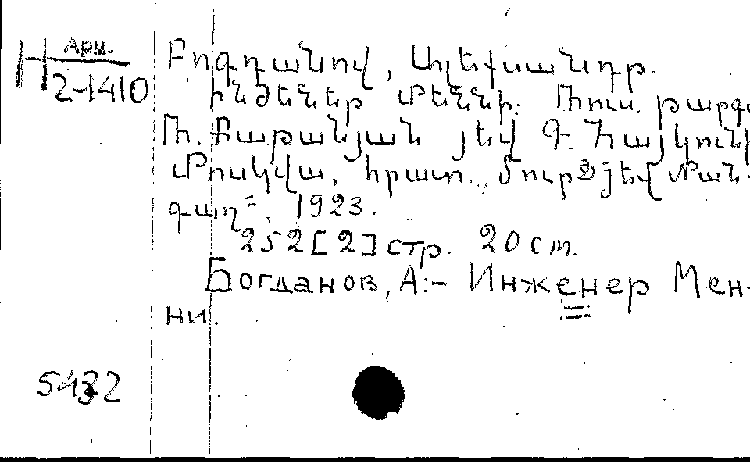 Н Арм.
2-1410
Բոգդանով, Ալեքսանդր.
Ինժեներ Մեննի. Ռուս. թարգմ.
Ռ. Քաթանյան յեվ Գ. Հայկունի
Մոսկվա, հրատ. „Մուրճ յեվ Ման-
գաղ“, 1923.
252 [2] стр. 20 ст.
Богданов, А:- Инженер Мен-
ни.
5432